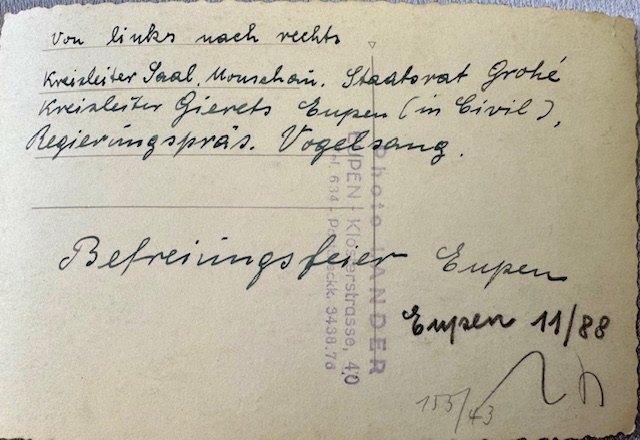 von links nach rechts
Kreisleiter Saal, Monschau. Staatsrat Grohé
Kreisleiter Gierets Eupen (in Civil),
Regierungspräs. Vogelsang.
Befreiungsfeier Eupen
Eupen 11/88
155/43
Photo LANDER
EUPEN - Klosterstrasse, 40
Tel. 634 - Postsckk. 3438.76